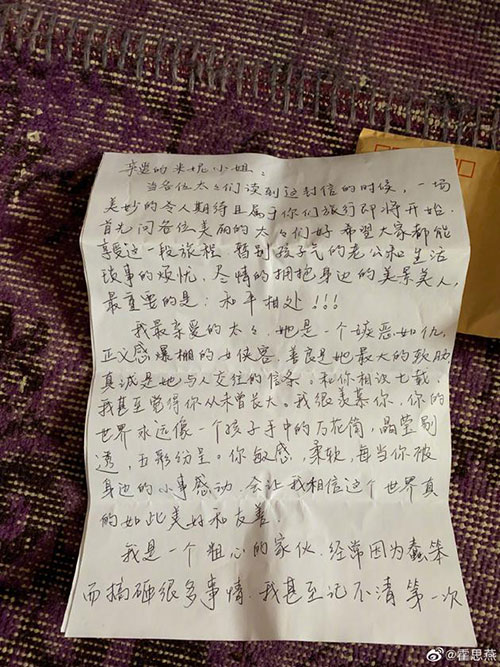 亲爱的米妮小姐：
当各位太太们读到这封信的时候，一场
美妙的令人期待且属于你们旅行即将开始.
首先问各位美丽的太太们好 希望大家都能
享受这一段旅程 暂别孩子气的老公和生活
琐事的烦忧. 尽情的拥抱身边的美景美人,
最重要的是：和平相处!!!
我最亲爱的太太, 她是一个疾恶如仇,
正义感爆棚的女侠客, 善良是她最大的软肋
真诚是她与人交往的信条. 和你相识七载,
我甚至觉得你从未曾长大. 我很羡慕你, 你的
世界永远像一个孩子手中的万花筒, 晶莹剔
透, 五彩纷呈. 你敏感, 柔软, 每当你被
身边的小事感动, 会让我相信这个世界真
的如此美好和友善.
我是一个粗心的家伙. 经常因为蠢笨
而搞砸很多事情. 我甚至记不清第一次
@霍思燕